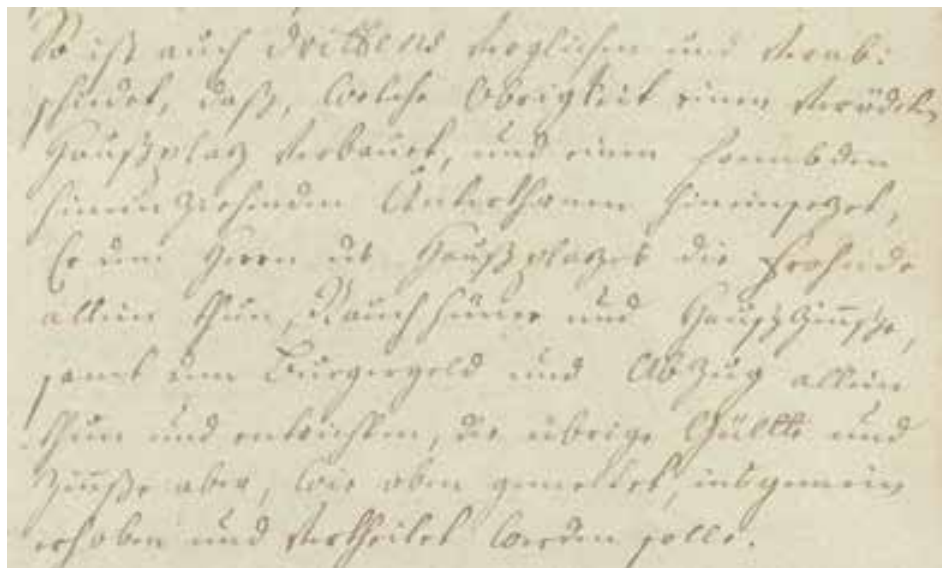 So ist auch drittens verglichen und verab:
schiedet, daß, welche Obrigkeit einen verödeten
Haußplatz verbauet, und einen frembden
hinein ziehenden Unterthanen hineinsezet,
Er dem Herrn des Haußplatzes die Frohnde
allein thun, Rauchhüner und Haußzinnße,
samt dem Burgergeld und Abzug allein
thun und entrichten, die übrige Gülltt und
Zinnße aber, wie oben gemeldet, insgemein
erhoben und vertheilet werden solle.